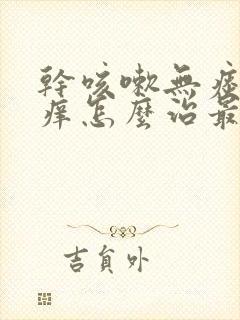 幹咳嗽無痰
癢怎麼治最
吉貟外